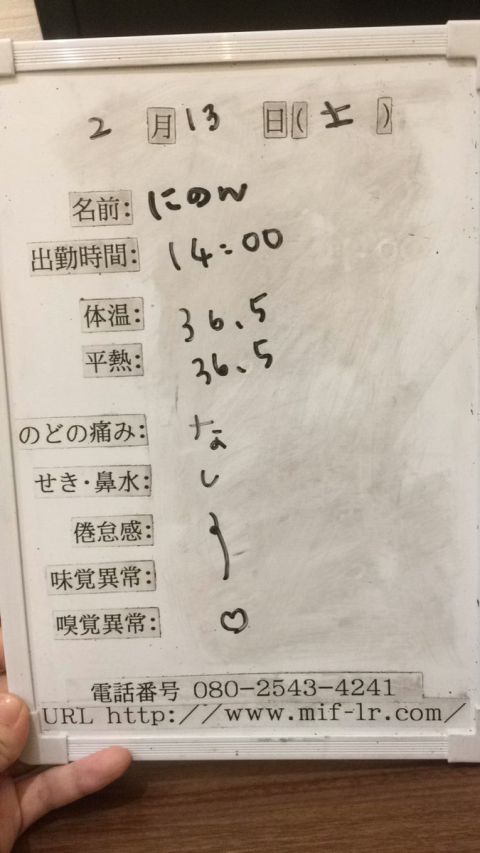 2 月 13 日(土)
名前: にのん
出勤時間: 14:00
体温: 36.5
平熱: 36.5
のどの痛み: な
せき・鼻水: し
倦怠感:
味覚異常:
嗅覚異常: ♡
電話番号 080-2543-4241
URL http://www.mif-lr.com/